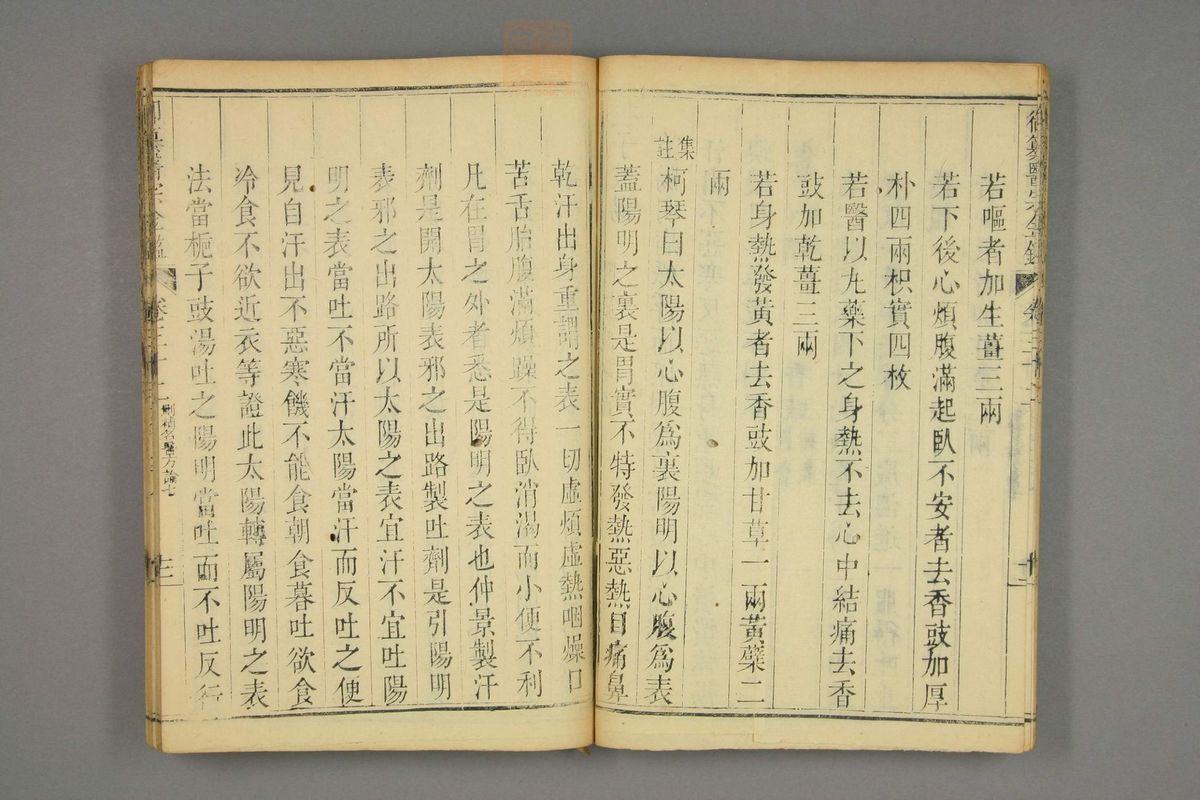 御纂醫宗金鑑 卷三十
若嘔者加生薑三兩
若下後心煩腹滿起臥不安者去香豉加厚
朴四兩枳實四枚
若醫以丸藥下之身熱不去心中結痛去香
豉加乾薑三兩
若身熱發黃者去香豉加甘草一兩黃蘗二
兩
集註
柯琴曰太陽以心腹爲裏陽明以心腹爲表
蓋陽明之裏是胃實不特發熱惡熱目痛鼻
乾汗出身重謂之表一切虛煩虛熱咽燥口
苦舌胎腹滿煩躁不得臥消渴而小便不利
凡在胃之外者悉是陽明之表也仲景製汗
劑是開太陽表邪之出路製吐劑是引陽明
表邪之出路所以太陽之表宜汗不宜吐陽
明之表當吐不當汗太陽當汗而反吐之便
見自汗出不惡寒饑不能食朝食暮吐欲食
冷食不欲近衣等證此太陽轉屬陽明之表
法當梔子豉湯吐之陽明當吐而不吐反行
刪補名醫方論七